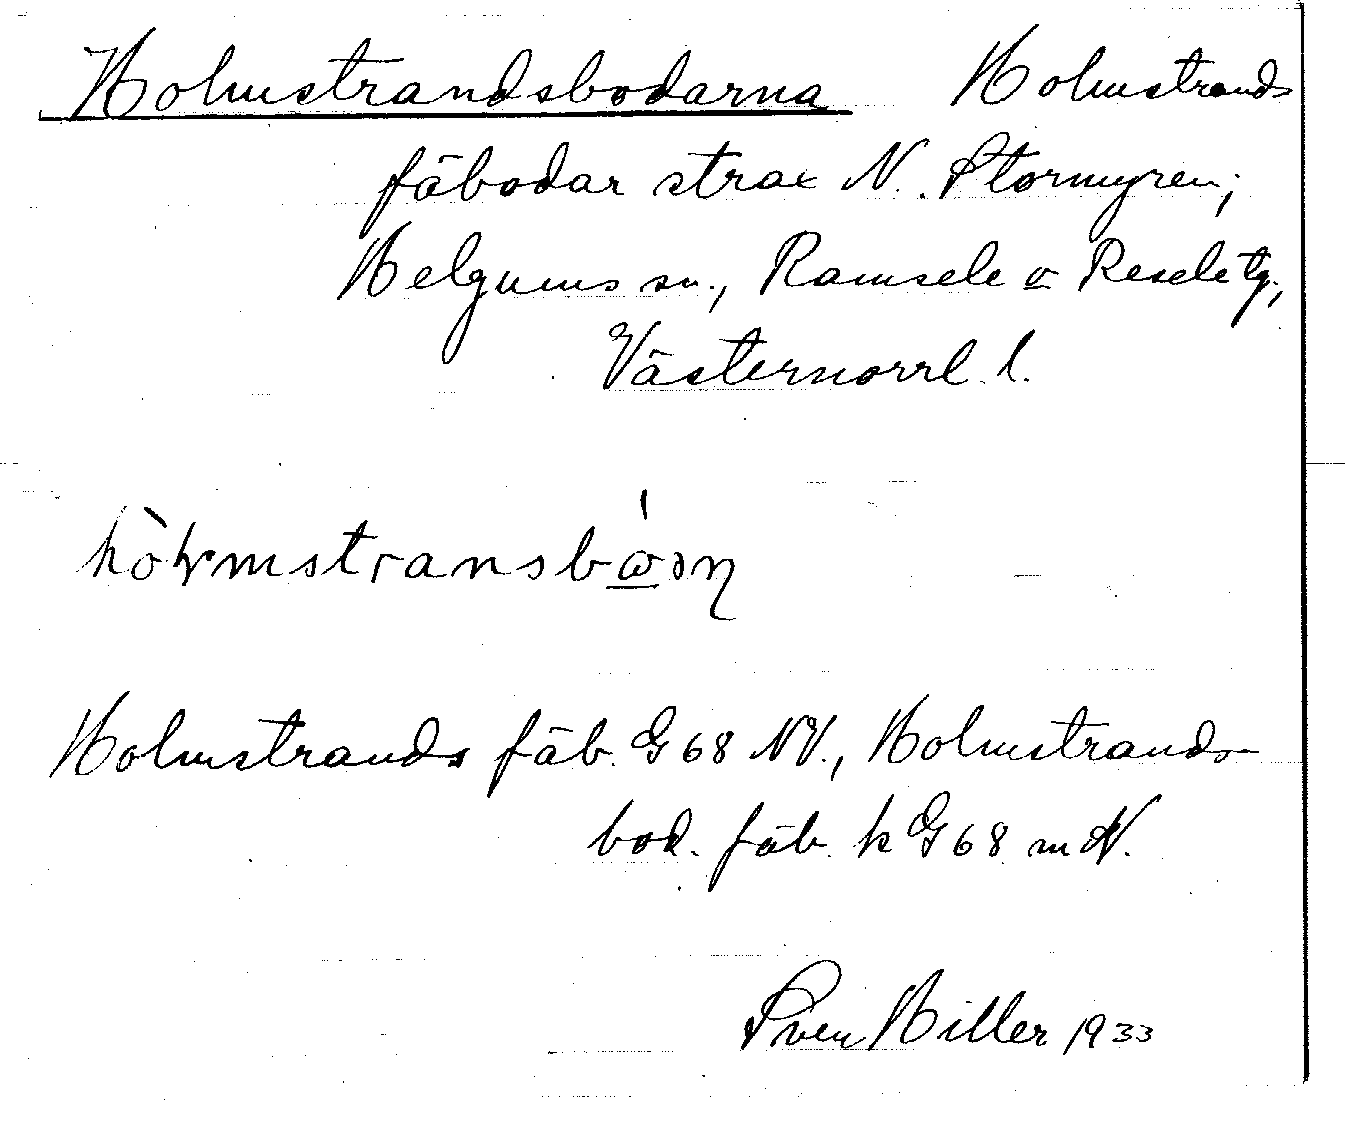 Holmstrandsbodarna Holmstrands
fäbodar strax N. Stormyren;
Helgums sn., Ramsele o Resele tg.,
Västernorrl. l.
Holmstrands fäb. G 68 NV., Holmstrands-
bod. fäb. k G 68 m N.
Sven Hiller 1933